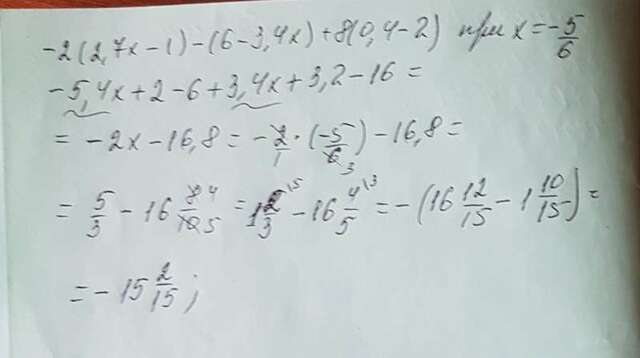 -2(2,7x-1)-(6-3,4x)+8(0,4-2) при x=-5/6
-5,4x+2-6+3,4x+3,2-16=
=-2x-16,8=-2/1·(-5/6 3)-16,8=
=5/3-16 8 4/10 5=1 2/3 \5-16 4/5 \3=-(16 12/15-1 10/15)=
=-15 2/15;